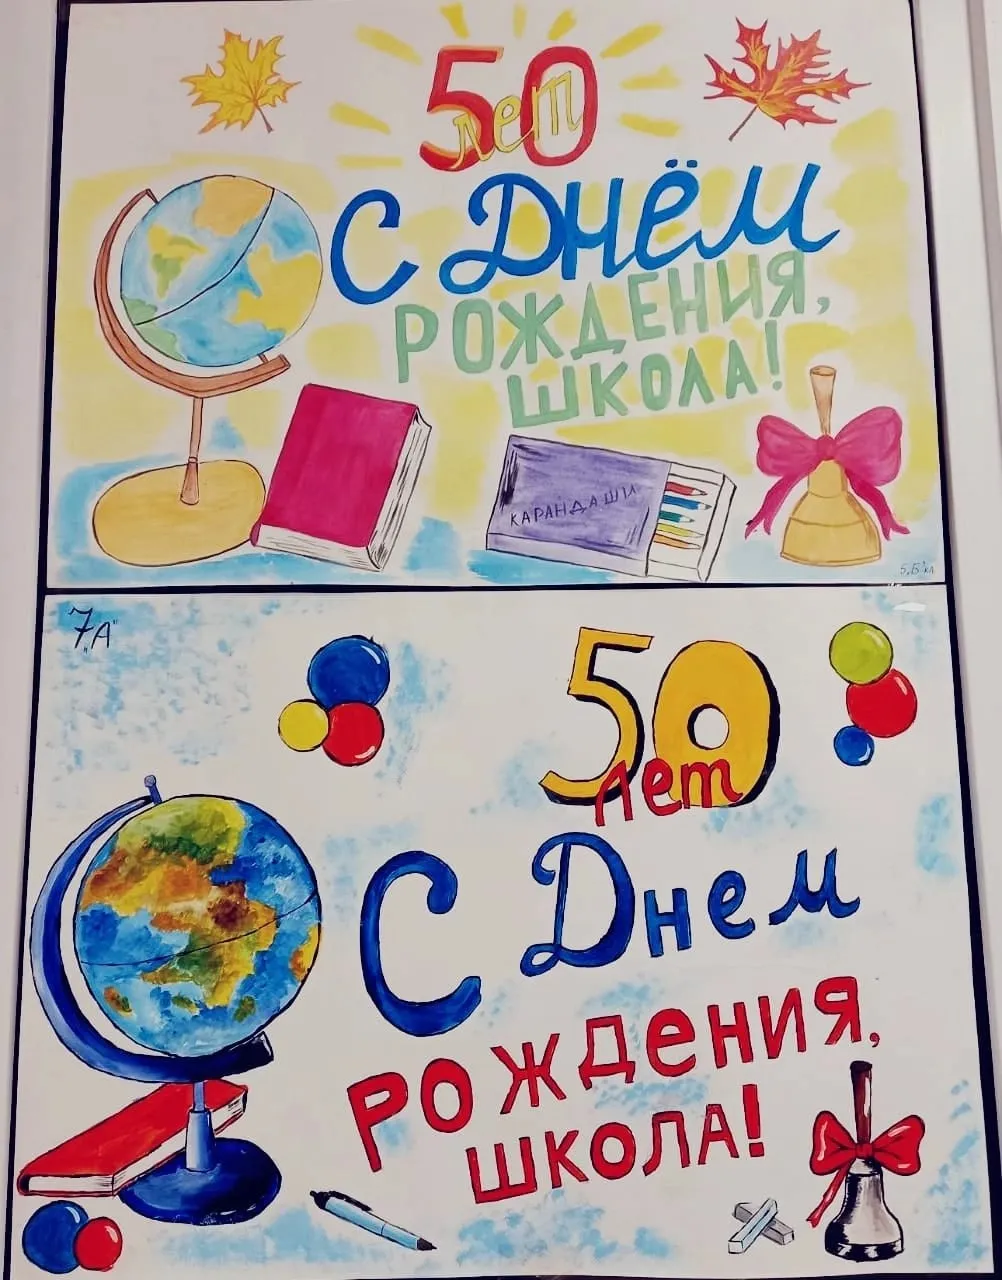 50
лет
С Днём
РОЖДЕНИЯ,
ШКОЛА!
КАРАНДАШИ
5„Б" кл
7„А"
50
лет
С Днем
РОЖДеНИЯ,
ШКОЛА!